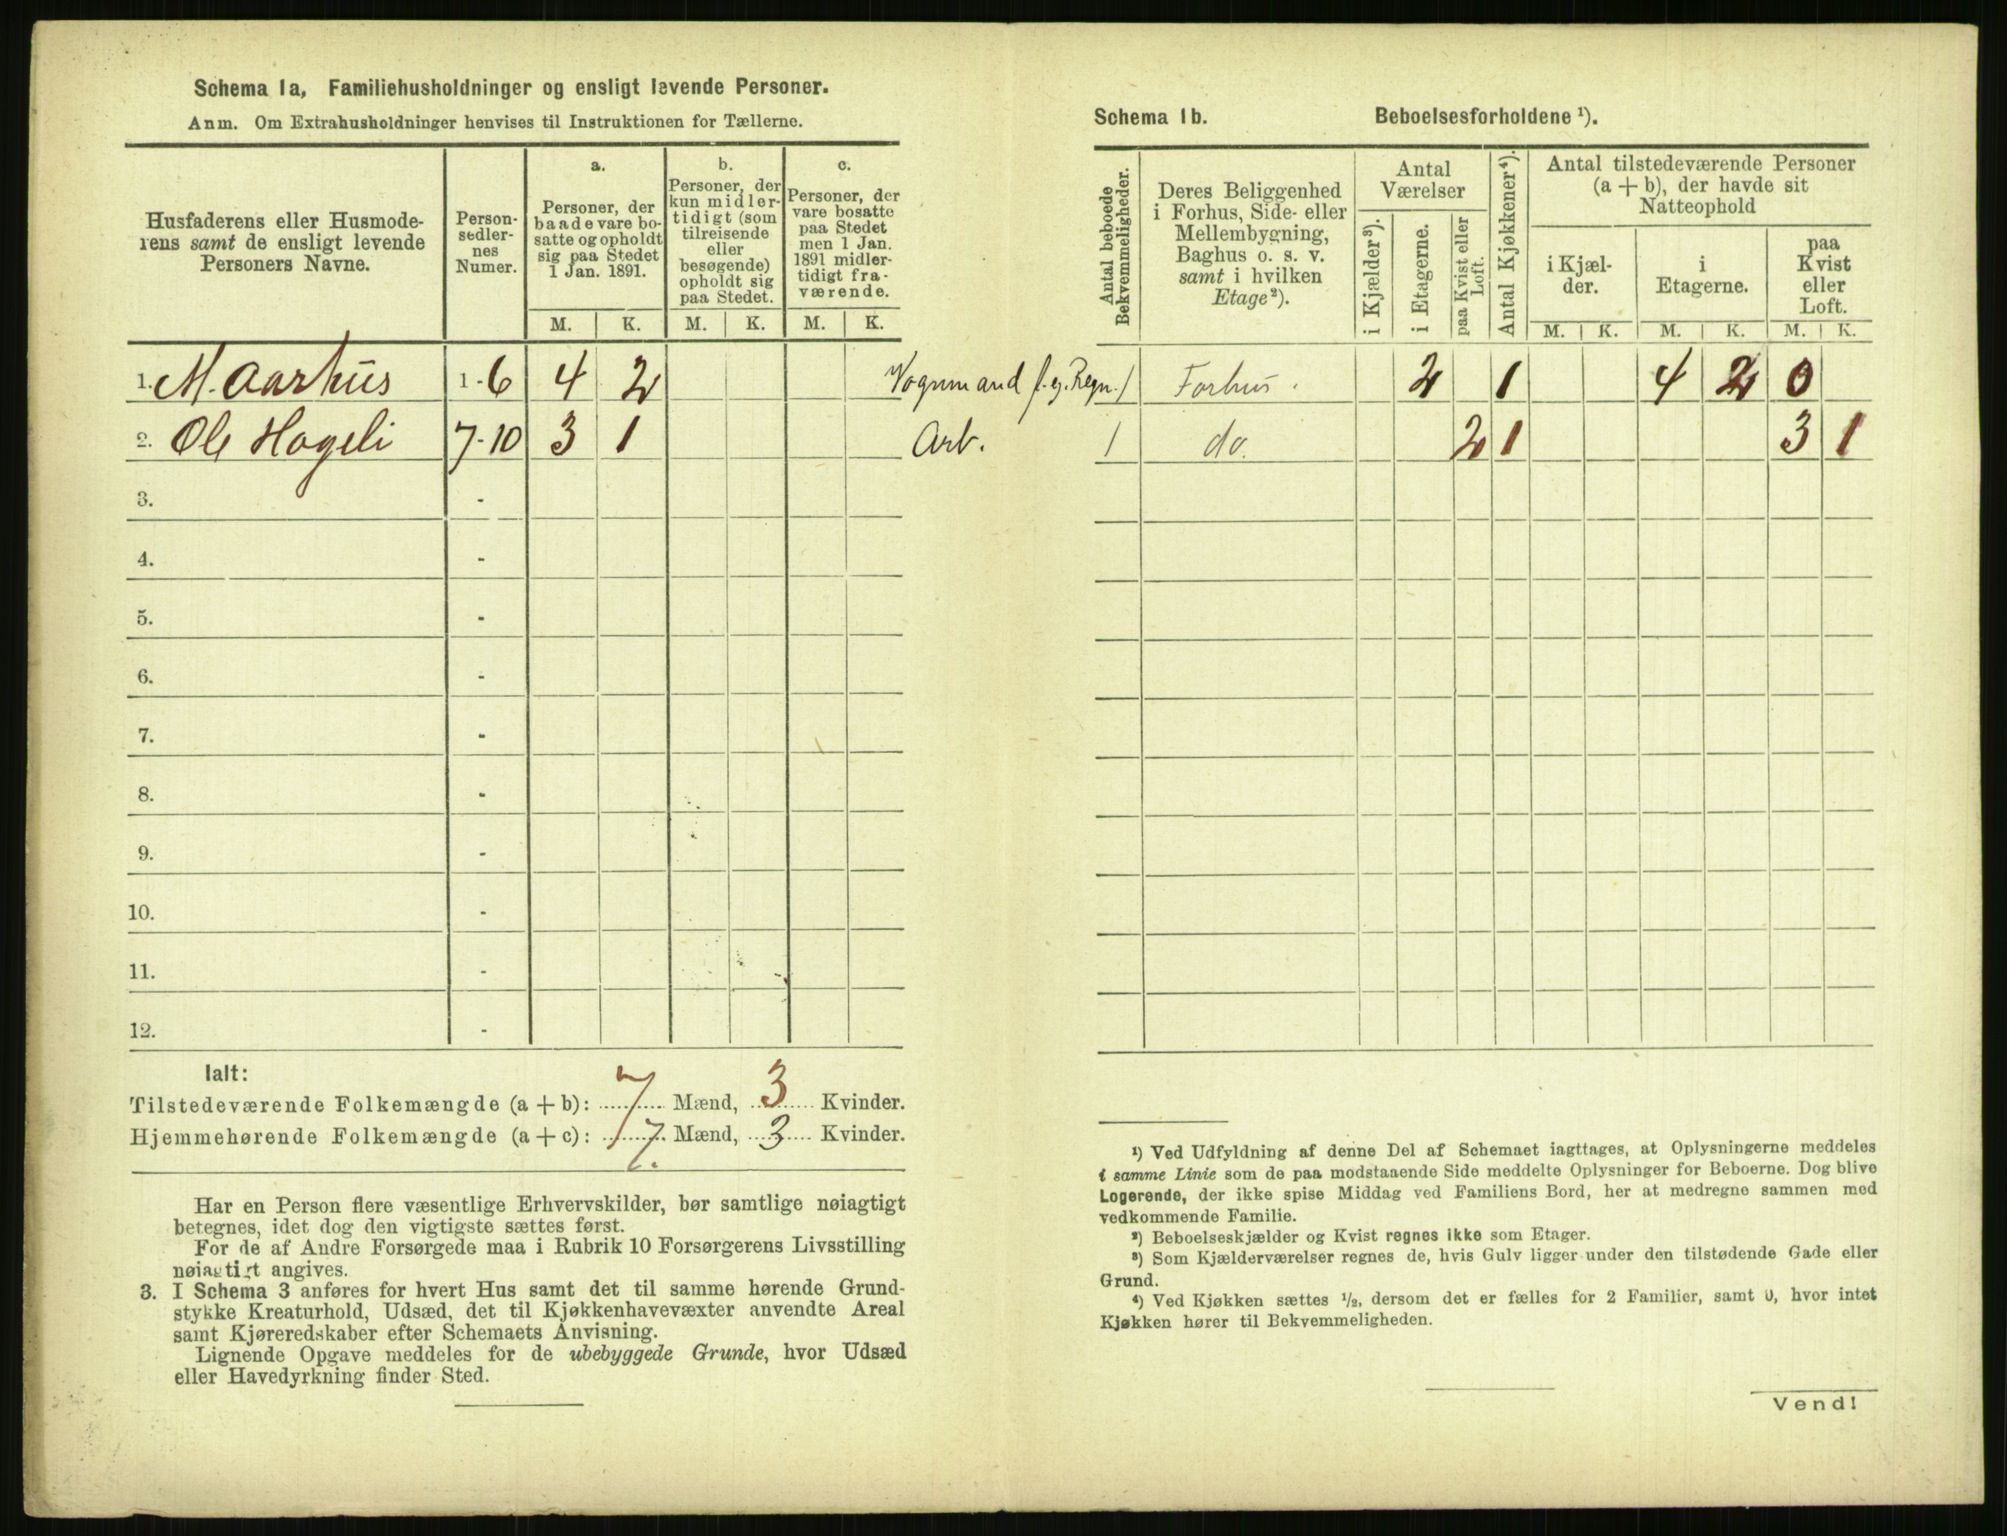 Schema 1a, Familiehusholdninger og ensligt levende Personer.
Anm. Om Extrahusholdninger henvises til Instruktionen for Tællerne.
Husfaderens eller Husmoderens samt de ensligt levende Personers Navne.
Personsedlernes Numer.
a.
Personer, der baade vare bosatte og opholdt sig paa Stedet 1 Jan. 1891.
b.
Personer, der kun midlertidigt (som tilreisende eller besøgende) opholdt sig paa Stedet.
c.
Personer, der vare bosatte paa Stedet men 1 Jan. 1891 midlertidigt fraværende.
M. K. M. K. M. K.
1. M. Aarhus 1-6 4 2 Vognmand f. eg. Regn.
2. Ole Hageli 7-10 3 1 Arb.
3. -
4. -
5. -
6. -
7. -
8. -
9. -
10. -
11. -
12. -
Ialt:
Tilstedeværende Folkemængde (a + b): 7 Mænd, 3 Kvinder.
Hjemmehørende Folkemængde (a + c): 7. Mænd, 3 Kvinder.
Har en Person flere væsentlige Erhvervskilder, bør samtlige nøiagtigt
betegnes, idet dog den vigtigste sættes først.
For de af Andre Forsørgede maa i Rubrik 10 Forsørgerens Livsstilling
nøiagtigt angives.
3. I Schema 3 anføres for hvert Hus samt det til samme hørende Grund-
stykke Kreaturhold, Udsæd, det til Kjøkkenhavevæxter anvendte Areal
samt Kjøreredskaber efter Schemaets Anvisning.
Lignende Opgave meddeles for de ubebyggede Grunde, hvor Udsæd
eller Havedyrkning finder Sted.
Schema 1b. Beboelsesforholdene ¹).
Antal beboede Bekvemmeligheder.
Deres Beliggenhed i Forhus, Side- eller Mellembygning, Baghus o. s. v. samt i hvilken Etage²).
Antal Værelser
i Kjælder³).
i Etagerne.
paa Kvist eller Loft.
Antal Kjøkkener⁴).
Antal tilstedeværende Personer (a + b), der havde sit Natteophold
i Kjælder.
i Etagerne.
paa Kvist eller Loft.
M. K. M. K. M. K.
1 Forhus. 2 1 4 2 0
1 do. 2 1 3 1
¹) Ved Udfyldning af denne Del af Schemaet iagttages, at Oplysningerne meddeles
i samme Linie som de paa modstaaende Side meddelte Oplysninger for Beboerne. Dog blive
Logerende, der ikke spise Middag ved Familiens Bord, her at medregne sammen med
vedkommende Familie.
²) Beboelseskjælder og Kvist regnes ikke som Etager.
³) Som Kjælderværelser regnes de, hvis Gulv ligger under den tilstødende Gade eller
Grund.
⁴) Ved Kjøkken sættes ½, dersom det er fælles for 2 Familier, samt 0, hvor intet
Kjøkken hører til Bekvemmeligheden.
Vend!